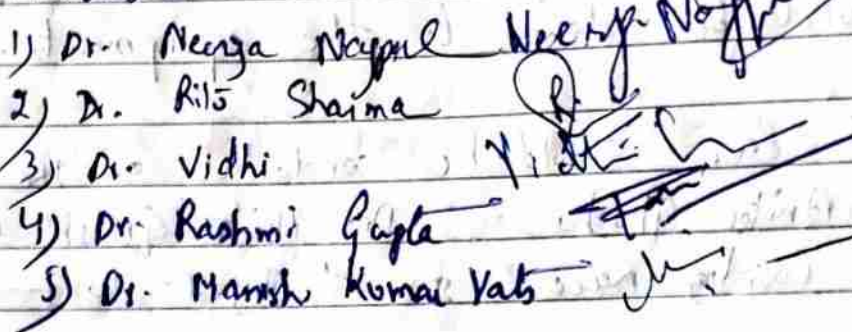 1) Dr. Neerja Nagpal Neerja Nagpal
2) Dr. Ritu Sharma
3) Dr. Vidhi Vidhi
4) Dr. Rashmi Gupta
5) Dr. Manish Kumar Vats